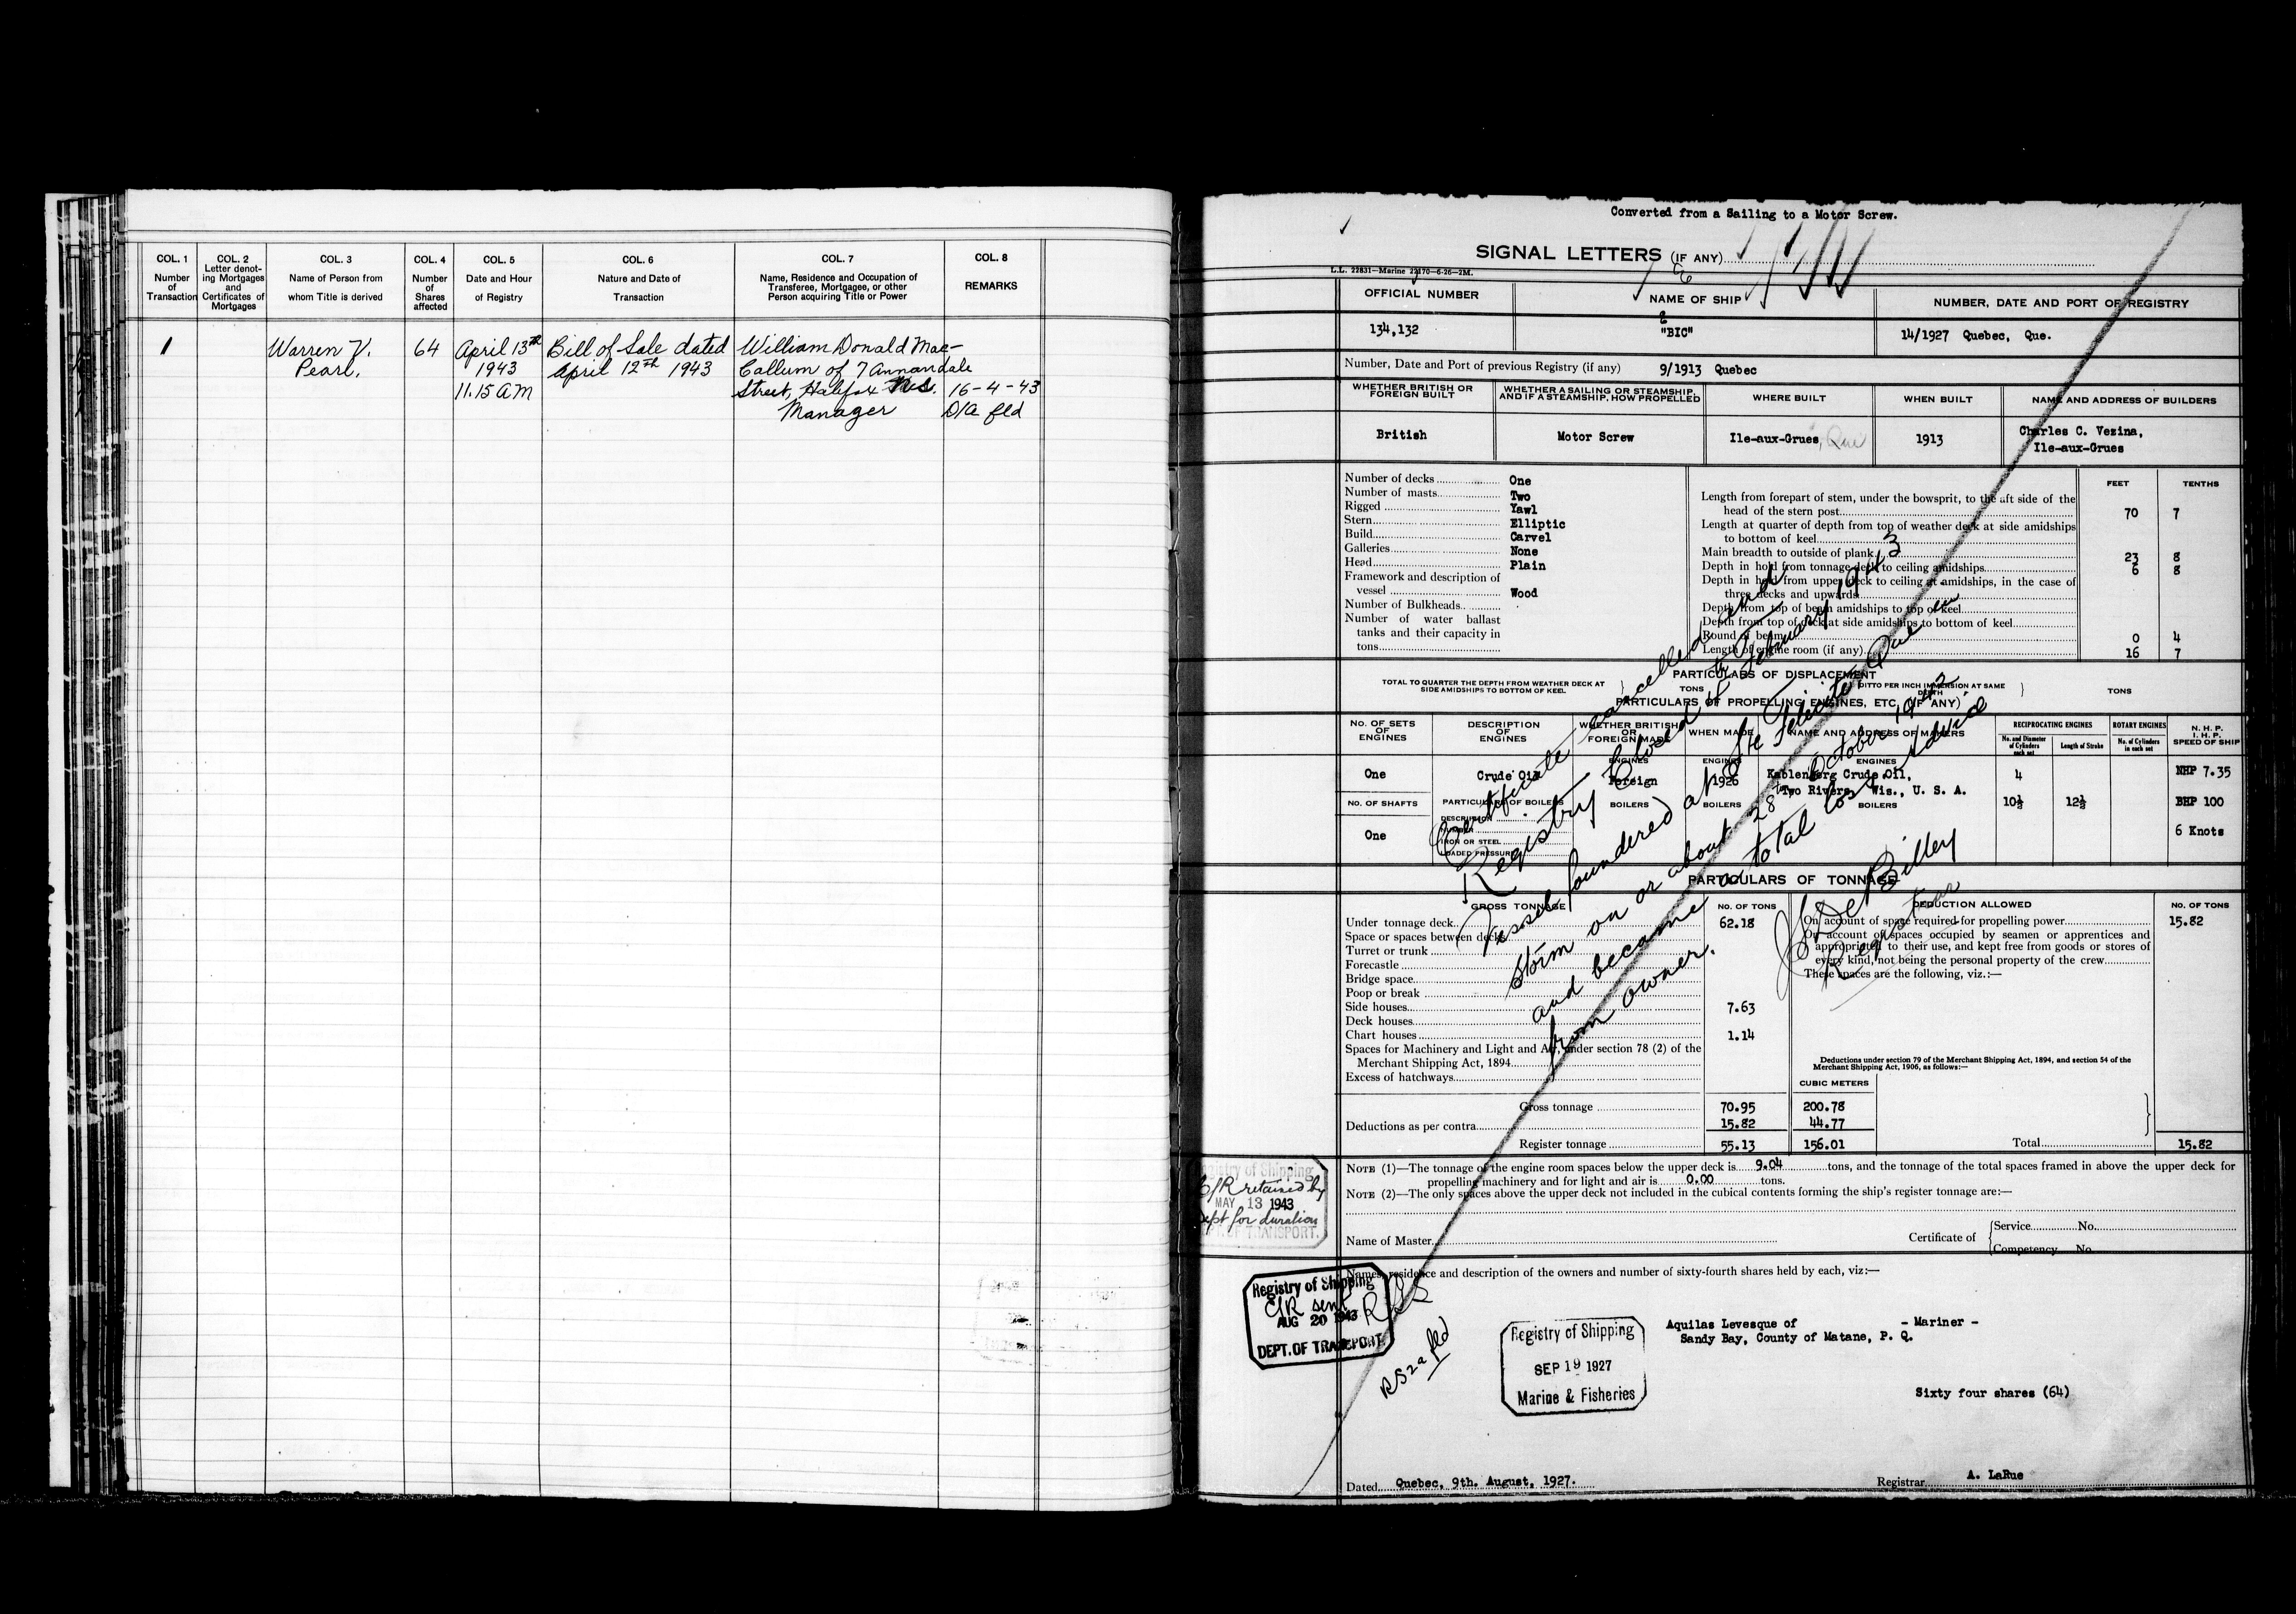 COL. 1
Number of Transaction
COL. 2
Letter denoting Mortgages and Certificates of Mortgages
COL. 3
Name of Person from whom Title is derived
COL. 4
Number of Shares affected
COL. 5
Date and Hour of Registry
COL. 6
Nature and Date of Transaction
COL. 7
Name, Residence and Occupation of Transferee, Mortgagee, or other Person acquiring Title or Power
COL. 8
REMARKS
1
Warren V.
Pearl.
64
April 13th
1943
11.15 AM
Bill of Sale dated
April 12th 1943
William Donald Mac-
Callum of 7 Annandale
Street, Halifax N.S.
Manager
16-4-43
D/A fld
Converted from a Sailing to a Motor Screw.
SIGNAL LETTERS (IF ANY)
L.L. 22831—Marine 22170—6-26—2M.
OFFICIAL NUMBER
NAME OF SHIP
NUMBER, DATE AND PORT OF REGISTRY
134,132
"BIC"
14/1927 Quebec, Que.
Number, Date and Port of previous Registry (if any) 9/1913 Quebec
WHETHER BRITISH OR FOREIGN BUILT
WHETHER A SAILING OR STEAMSHIP AND IF A STEAMSHIP, HOW PROPELLED
WHERE BUILT
WHEN BUILT
NAME AND ADDRESS OF BUILDERS
British
Motor Screw
Ile-aux-Grues, Que
1913
Charles C. Vezina,
Ile-aux-Grues
Number of decks One
Number of masts Two
Rigged Yawl
Stern Elliptic
Build Carvel
Galleries None
Head Plain
Framework and description of
vessel Wood
Number of Bulkheads
Number of water ballast
tanks and their capacity in
tons
FEET TENTHS
Length from forepart of stem, under the bowsprit, to the aft side of the
head of the stern post 70 7
Length at quarter of depth from top of weather deck at side amidships
to bottom of keel
Main breadth to outside of plank 23 8
Depth in hold from tonnage deck to ceiling amidships 6 8
Depth in hold from upper deck to ceiling at amidships, in the case of
three decks and upwards
Depth from top of beam amidships to top of keel
Depth from top of deck at side amidships to bottom of keel
Round of beam 0 4
Length of engine room (if any) 16 7
PARTICULARS OF DISPLACEMENT
TOTAL TO QUARTER THE DEPTH FROM WEATHER DECK AT
SIDE AMIDSHIPS TO BOTTOM OF KEEL
TONS
DITTO PER INCH IMMERSION AT SAME
DEPTH
TONS
PARTICULARS OF PROPELLING ENGINES, ETC. (IF ANY)
No. OF SETS OF ENGINES
DESCRIPTION OF ENGINES
WHETHER BRITISH OR FOREIGN MADE
WHEN MADE
NAME AND ADDRESS OF MAKERS
RECIPROCATING ENGINES
No. and Diameter of Cylinders each set
Length of Stroke
ROTARY ENGINES
No. of Cylinders in each set
N. H. P.
I. H. P.
SPEED OF SHIP
ENGINES
ENGINES
ENGINES
One
Crude Oil
Foreign
1926
Kahlenberg Crude Oil,
Two Rivers, Wis., U. S. A.
4
10½
12½
NHP 7.35
BHP 100
6 Knots
No. OF SHAFTS
One
PARTICULARS OF BOILERS
DESCRIPTION
NUMBER
IRON OR STEEL
LOADED PRESSURE
BOILERS
BOILERS
BOILERS
PARTICULARS OF TONNAGE
GROSS TONNAGE
No. OF TONS
Under tonnage deck 62.18
Space or spaces between decks
Turret or trunk
Forecastle
Bridge space
Poop or break
Side houses 7.63
Deck houses
Chart houses 1.14
Spaces for Machinery and Light and Air, under section 78 (2) of the
Merchant Shipping Act, 1894
Excess of hatchways
DEDUCTION ALLOWED
No. OF TONS
On account of space required for propelling power 15.82
On account of spaces occupied by seamen or apprentices and
appropriated to their use, and kept free from goods or stores of
every kind, not being the personal property of the crew
These spaces are the following, viz.:—
Deductions under section 79 of the Merchant Shipping Act, 1894, and section 54 of the
Merchant Shipping Act, 1906, as follows:—
CUBIC METERS
Gross tonnage 70.95 200.78
Deductions as per contra 15.82 44.77
Register tonnage 55.13 156.01
Total 15.82
Certificate cancelled and
Registry closed 5th February 1943
Vessel foundered at Ste Felicite, Que in
storm on or about 28th October, 1942
and became a total loss. Advice
from owner.
Billey
Registrar
NOTE (1)—The tonnage of the engine room spaces below the upper deck is 9.04 tons, and the tonnage of the total spaces framed in above the upper deck for
propelling machinery and for light and air is 0.00 tons.
NOTE (2)—The only spaces above the upper deck not included in the cubical contents forming the ship's register tonnage are:—
Name of Master
Certificate of
Service No.
Competency No.
Registry of Shipping
C/R retained by
MAY 13 1943
Dept for duration
DEPT. OF TRANSPORT.
Names, residence and description of the owners and number of sixty-fourth shares held by each, viz:—
Registry of Shipping
C/R sent RGS
AUG 20 1943
DEPT. OF TRANSPORT
RS2a fld
Registry of Shipping
SEP 19 1927
Marine & Fisheries
Aquilas Levesque of - Mariner -
Sandy Bay, County of Matane, P. Q.
Sixty four shares (64)
Dated Quebec, 9th. August, 1927.
Registrar A. LaRue